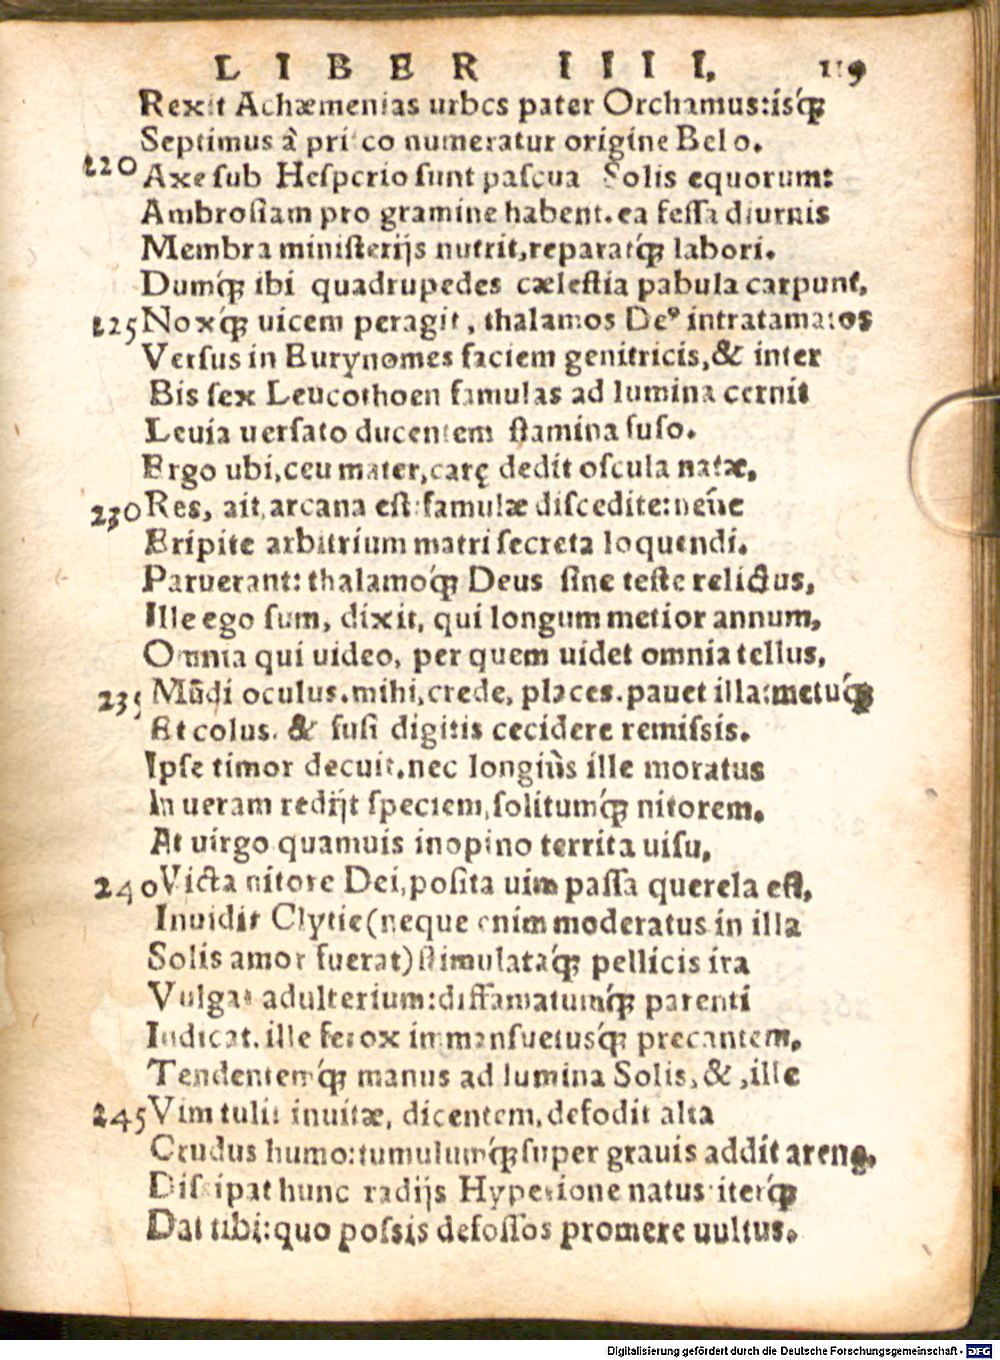 LIBER IIII. 119
Rexit Achæmenias urbes pater Orchamus:isq́ꝫ
Septimus à prisco numeratur origine Belo.
220 Axe sub Hesperio sunt pascua Solis equorum:
Ambrosiam pro gramine habent.ea fessa diurnis
Membra ministerijs nutrit,reparatq́ꝫ labori.
Dumq́ꝫ ibi quadrupedes cælestia pabula carpunt,
225 Noxq́ꝫ uicem peragit, thalamos Deꝰ intratamatos
Versus in Eurynomes faciem genitricis,& inter
Bis sex Leucothoen famulas ad lumina cernit
Leuia uersato ducentem stamina fuso.
Ergo ubi,ceu mater,carę dedit oscula natæ,
230 Res, ait,arcana est:famulæ discedite:neũe
Eripite arbitrium matri secreta loquendi.
Paruerant: thalamoq́ꝫ Deus sine teste relictus,
Ille ego sum, dixit, qui longum metior annum,
Omnia qui uideo, per quem uidet omnia tellus,
235 Mũdi oculus.mihi,crede, places.pauet illa:metuq́ꝫ
Et colus. & fusi digitis cecidere remissis.
Ipse timor decuit.nec longiùs ille moratus
In ueram redijt speciem,solitumq́ꝫ nitorem.
At uirgo quamuis inopino territa uisu,
240 Victa nitore Dei,posita uim passa querela est,
Inuidit Clytie(neque enim moderatus in illa
Solis amor fuerat)stimulataq́ꝫ pellicis ira
Vulgat adulterium:diffamatumq́ꝫ parenti
Indicat. ille ferox immansuetusq́ꝫ precantem,
Tendentemq́ꝫ manus ad lumina Solis,&,ille
245 Vim tulit inuitæ, dicentem,defodit alta
Crudus humo:tumulumq́ꝫ super grauis addit arenę.
Dissipat hunc radijs Hyperione natus:iterq́ꝫ
Dat tibi:quo possis defossos promere uultus.
Digitalisierung gefördert durch die Deutsche Forschungsgemeinschaft - DFG